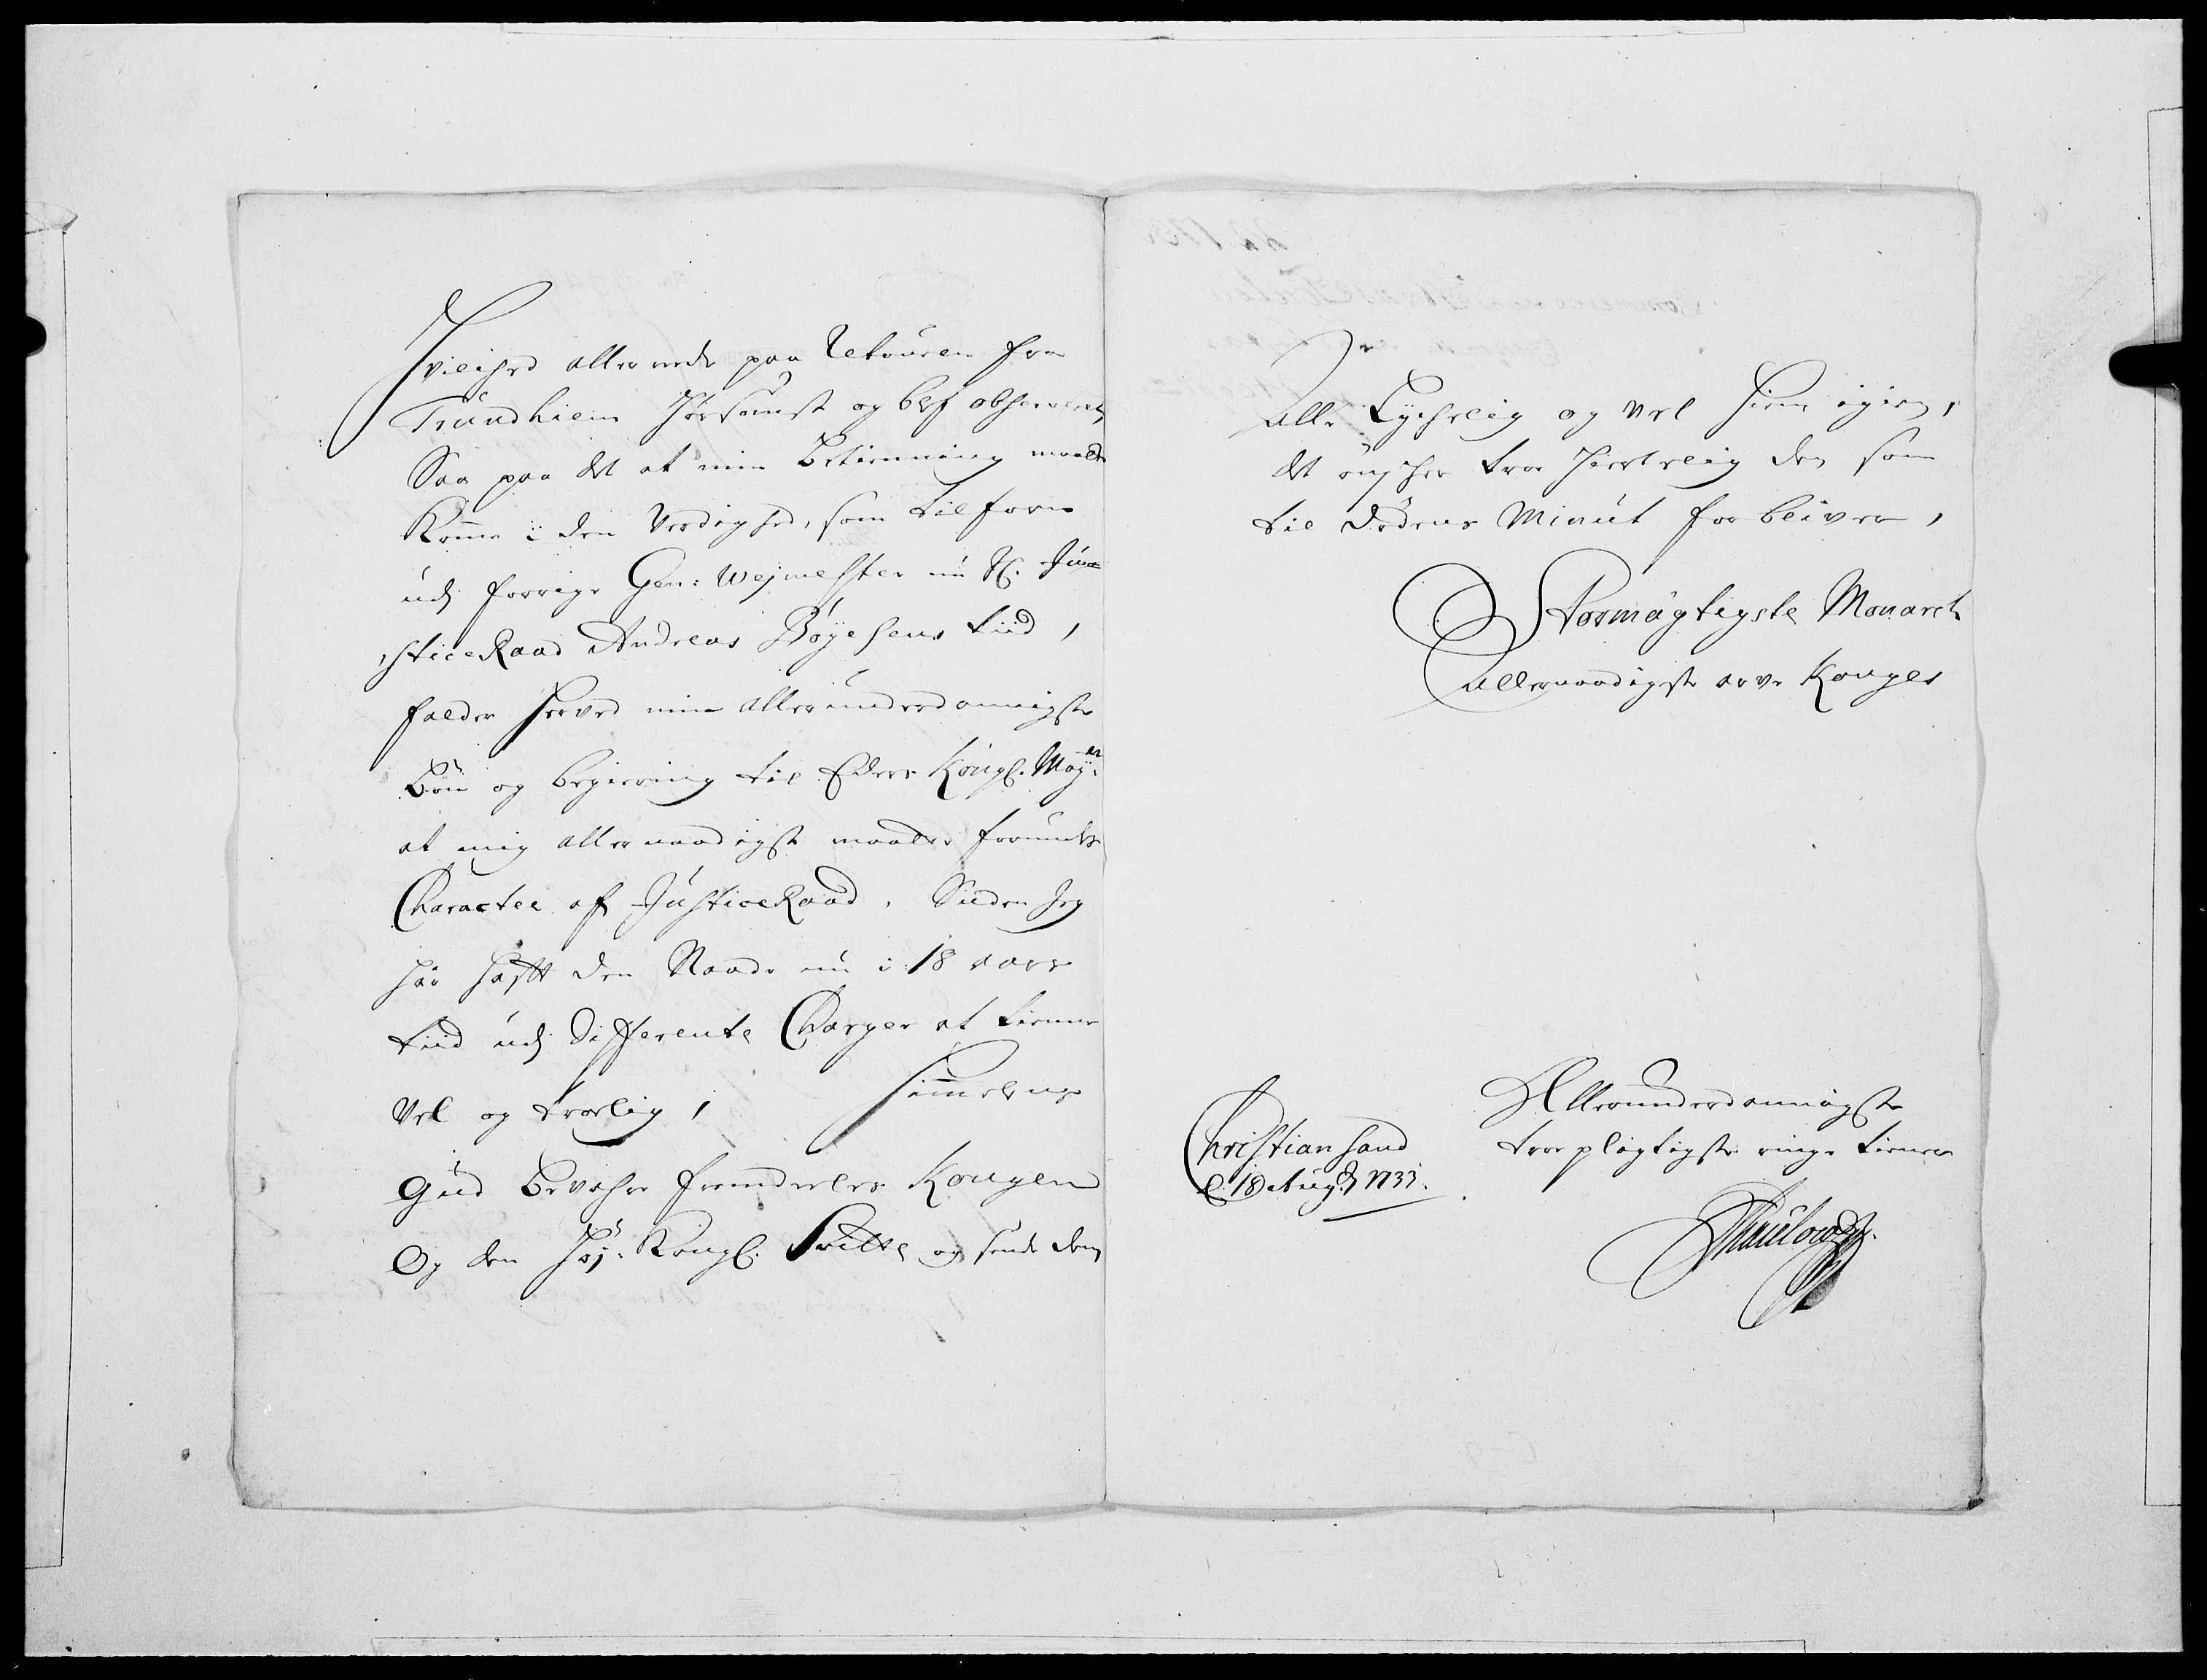 Hvilched allereede paa Retouren fra
Trundhiem Hørsomst og blef observeret,
Saa paa det at min Betienning maatte
Komme i den Verdighed, som tilforn
udj forrige Gen: Wejmester nu H. Ju=
sticeRaad Andreas Bøyesens tiid,
falder herved min allerunderdannigste
Bøn og begiering til Eders Kongl. May:tt
at mig allernaadigst maatte forundes
Character af JusticeRaad, Siiden Jeg
har hafft den Naade nu i 18 aars
tiid udj Differente Charger at tienne
Vel og troelig, Himmelens
Gud Bevahre fremdeeles Kongen
Og den Høj: Kongl. Svitte og sende dem
alle Lychelig og vel hiem igien,
det ønscher troe hiertelig den som
til Dødens Minut forbliver,
Stormægtigste Monarch
Allernaadigste arve Konges
Christiansand
d. 18 Aug: 1733.
Allerunderdannigste
troe pligtigste ringe tienner
Thaulow